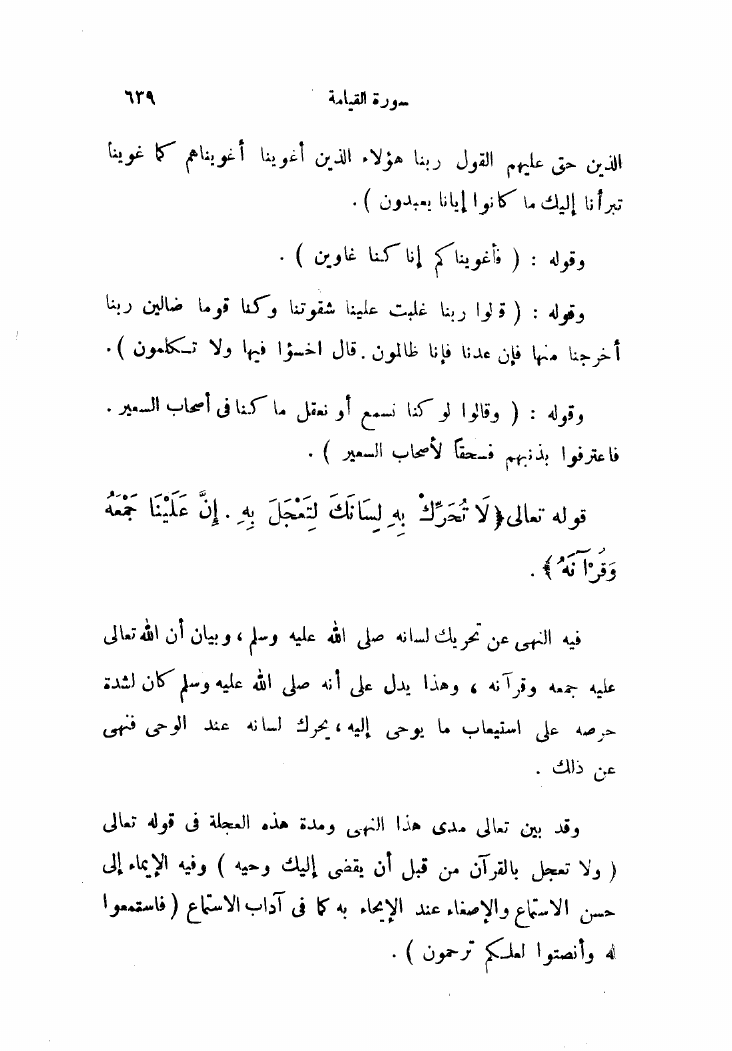 سورة القيامة ٦٣٩
الذين حق عليهم القول ربنا هؤلاء الذين أغوينا أغويناهم كما غوينا
تبرأنا إليك ما كانوا إيانا يعبدون ) .
وقوله : ( فأغويناكم إنا كنا غاوين ) .
وقوله : ( قالوا ربنا غلبت علينا شقوتنا وكنا قوما ضالين ربنا
أخرجنا منها فإن عدنا فإنا ظالمون . قال اخسؤا فيها ولا تكلمون ) .
وقوله : ( وقالوا لو كنا نسمع أو نعقل ما كنا فى أصحاب السعير .
فاعترفوا بذنبهم فسحقاً لأصحاب السعير ) .
قوله تعالى ﴿ لَا تُحَرِّكْ بِهِ لِسَانَكَ لِتَعْجَلَ بِهِ . إِنَّ عَلَيْنَا جَمْعَهُ
وَقُرْآنَهُ ﴾ .
فيه النهى عن تحريك لسانه صلى الله عليه وسلم ، وبيان أن الله تعالى
عليه جمعه وقرآنه ، وهذا يدل على أنه صلى الله عليه وسلم كان لشدة
حرصه على استيعاب ما يوحى إليه ، يحرك لسانه عند الوحى فنهى
عن ذلك .
وقد بين تعالى مدى هذا النهى ومدة هذه العجلة فى قوله تعالى
( ولا تعجل بالقرآن من قبل أن يقضى إليك وحيه ) وفيه الإيماء إلى
حسن الاستماع والإصغاء عند الإيحاء به كما فى آداب الاستماع ( فاستمعوا
له وأنصتوا لعلكم ترحمون ) .